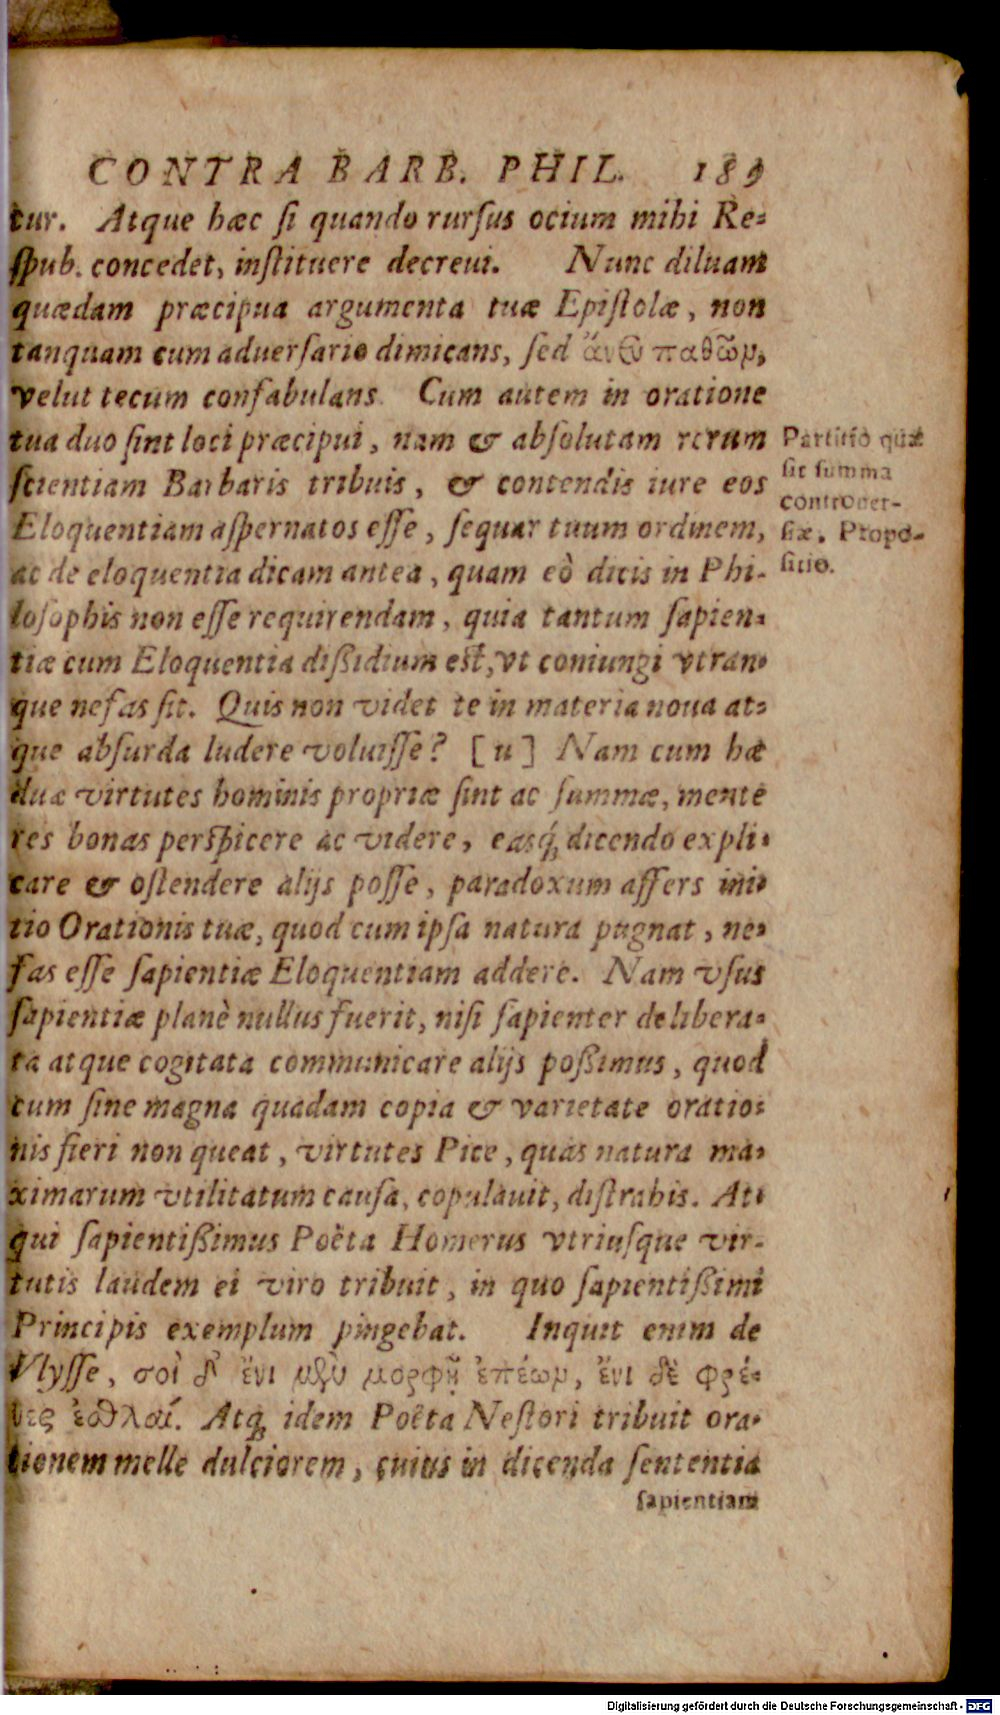 CONTRA BARB. PHIL. 189
tur. Atque hæc ſi quando rurſus ocium mihi Re-
ſpub. concedet, inſtituere decreui. Nunc diluam
quædam præcipua argumenta tuæ Epiſtolæ, non
tanquam cum aduerſario dimicans, ſed ἄνευ παθῶν,
velut tecum confabulans. Cum autem in oratione
tua duo ſint loci præcipui, nam & abſolutam rerum
ſcientiam Barbaris tribuis, & contendis iure eos
Eloquentiam aſpernatos eſſe, ſequar tuum ordinem,
ac de eloquentia dicam antea, quam eò dicis in Phi-
loſophis non eſſe requirendam, quia tantum ſapien-
tiæ cum Eloquentia dißidium est, vt coniungi vtran-
que nefas ſit. Quis non videt te in materia noua at-
que abſurda ludere voluiſſe? [u] Nam cum hæ
duæ virtutes hominis propriæ ſint ac ſummæ, mente
res bonas perſpicere ac videre, easq́ꝫ dicendo expli-
care & oſtendere alijs poſſe, paradoxum affers ini-
tio Orationis tuæ, quod cum ipſa natura pugnat, ne-
fas eſſe ſapientiæ Eloquentiam addere. Nam vſus
ſapientiæ planè nullus fuerit, niſi ſapienter delibera-
ta atque cogitata communicare alijs poßimus, quod
cum ſine magna quadam copia & varietate oratio-
nis fieri non queat, virtutes Pice, quas natura ma-
ximarum vtilitatum cauſa, copulauit, diſtrahis. At-
qui ſapientißimus Poëta Homerus vtriuſque vir-
tutis laudem ei viro tribuit, in quo ſapientißimi
Principis exemplum pingebat. Inquit enim de
Vlyſſe, σοὶ δ' ἔνι μὲν μορφὴ ἐπέων, ἔνι δὲ φρέ-
νες ἐσθλαί. Atqꝫ idem Poëta Neſtori tribuit ora-
tionem melle dulciorem, cuius in dicenda ſententia
ſapientiam
Partitio quæ
ſit ſumma
controuer-
ſiæ. Propo-
ſitio.
Digitalisierung gefördert durch die Deutsche Forschungsgemeinschaft - DFG